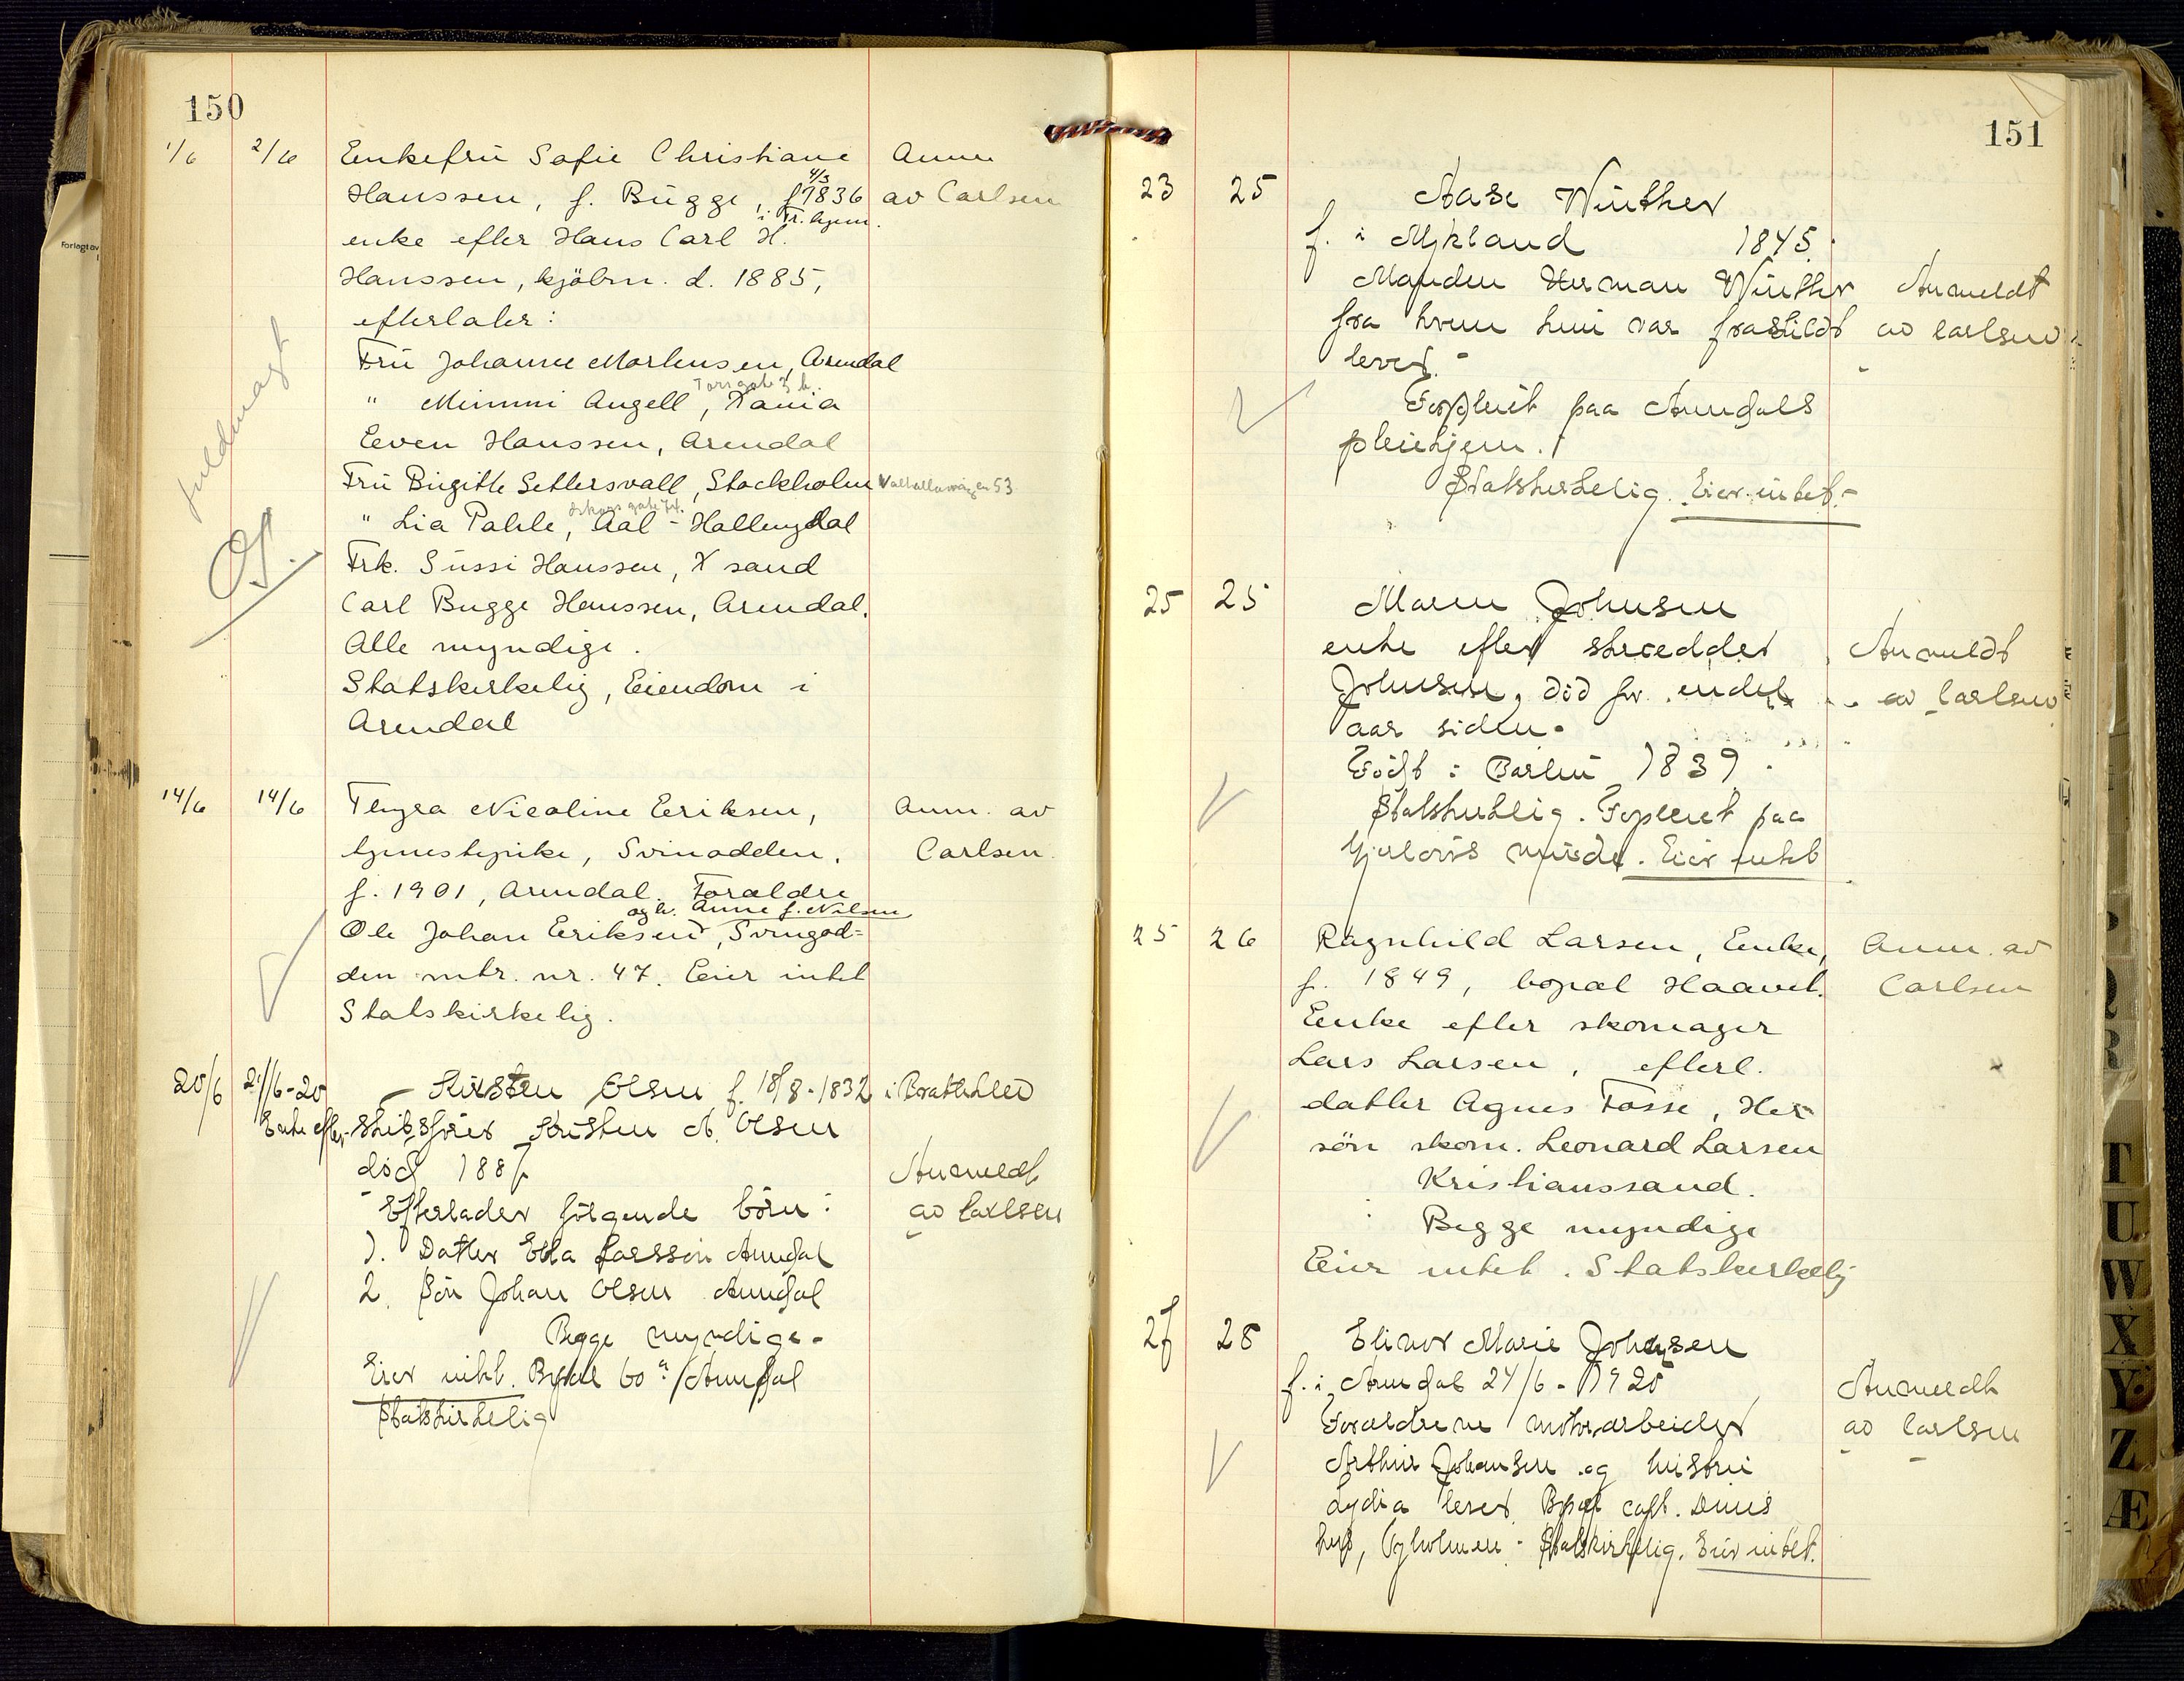 150
1/6 2/6 Enkefru Sofie Christiane Anm.
Hanssen, f. Bugge, f. 4/3 1836 av Carlsen
i Fr.havn.
enke efter Hans Carl H.
Hanssen, kjøbm. d. 1885,
efterlater:
Fru Johanne Mortensen, Arendal
" Mimmi Angell, Kania
Even Hanssen, Arendal
Fru Birgitte Settersvall, Stockholm Valhallavägen 53
" Lia Pahle, Aal - Hallingdal
Frk. Sussi Hanssen, X sand
Carl Bugge Hanssen, Arendal.
Alle myndige.
Statskirkelig, Eiendom i
Arendal
fuldmagt
14/6 14/6 Thyra Nicoline Eriksen, Anm. av
tjenestepike, Svinodden, Carlsen.
f. 1901, Arendal. Forældre
og h. Anne f. Nilsen
Ole Johan Eriksen, Svinod-
den mtr. nr. 47. Eier intet
Statskirkelig.
20/6 21/6-20 Kirsten Olsen f. 18/8-1832 i Brattekleiv
Enke efter skibsfører Kristen N. Olsen
død 1887 Anmeldt
Efterlader følgende börn: av Carlsen
1. Datter Ella Larsson Arendal
2. Sön Johan Olsen Arendal
Begge myndige.
Eier intet. Bopæl 60 a Arendal
Statskirkelig
151
23 25 Aase Winther
f. i Mykland 1845.
Manden Herman Winther Anmeldt
fra hvem hun var fraskildt av Carlsen
lever.
Forpleiet paa Arendals
pleiehjem.
Statskirkelig. Eier intet.
25 25 Maren Johnsen
enke efter skrædder Anmeldt
Johnsen, død for endel av Carlsen
aar siden.
Född i Barbu 1839.
Statskirkelig. Forpleiet paa
Gjerlovs minde. Eier intet
25 26 Ragnhild Larsen, Enke, Anm. av
f. 1849, bopæl Haavet. Carlsen
Enke efter skomager
Lars Larsen, efterl.
datter Agnes Fosse, Her
sön skom. Leonard Larsen
Kristianssand.
Begge myndige
Eier intet. Statskirkelig
27 28 Elinor Marie Johansen
f. i Arendal 24/6-1920 Anmeldt
Forældrene motorarbeider av Carlsen
Arthur Johansen og hustru
Lydia lever. Bopæl capt.
hus, Tyholmen - Statskirkelig. Eier intet.
T
U
W
X
Y
Z
Æ